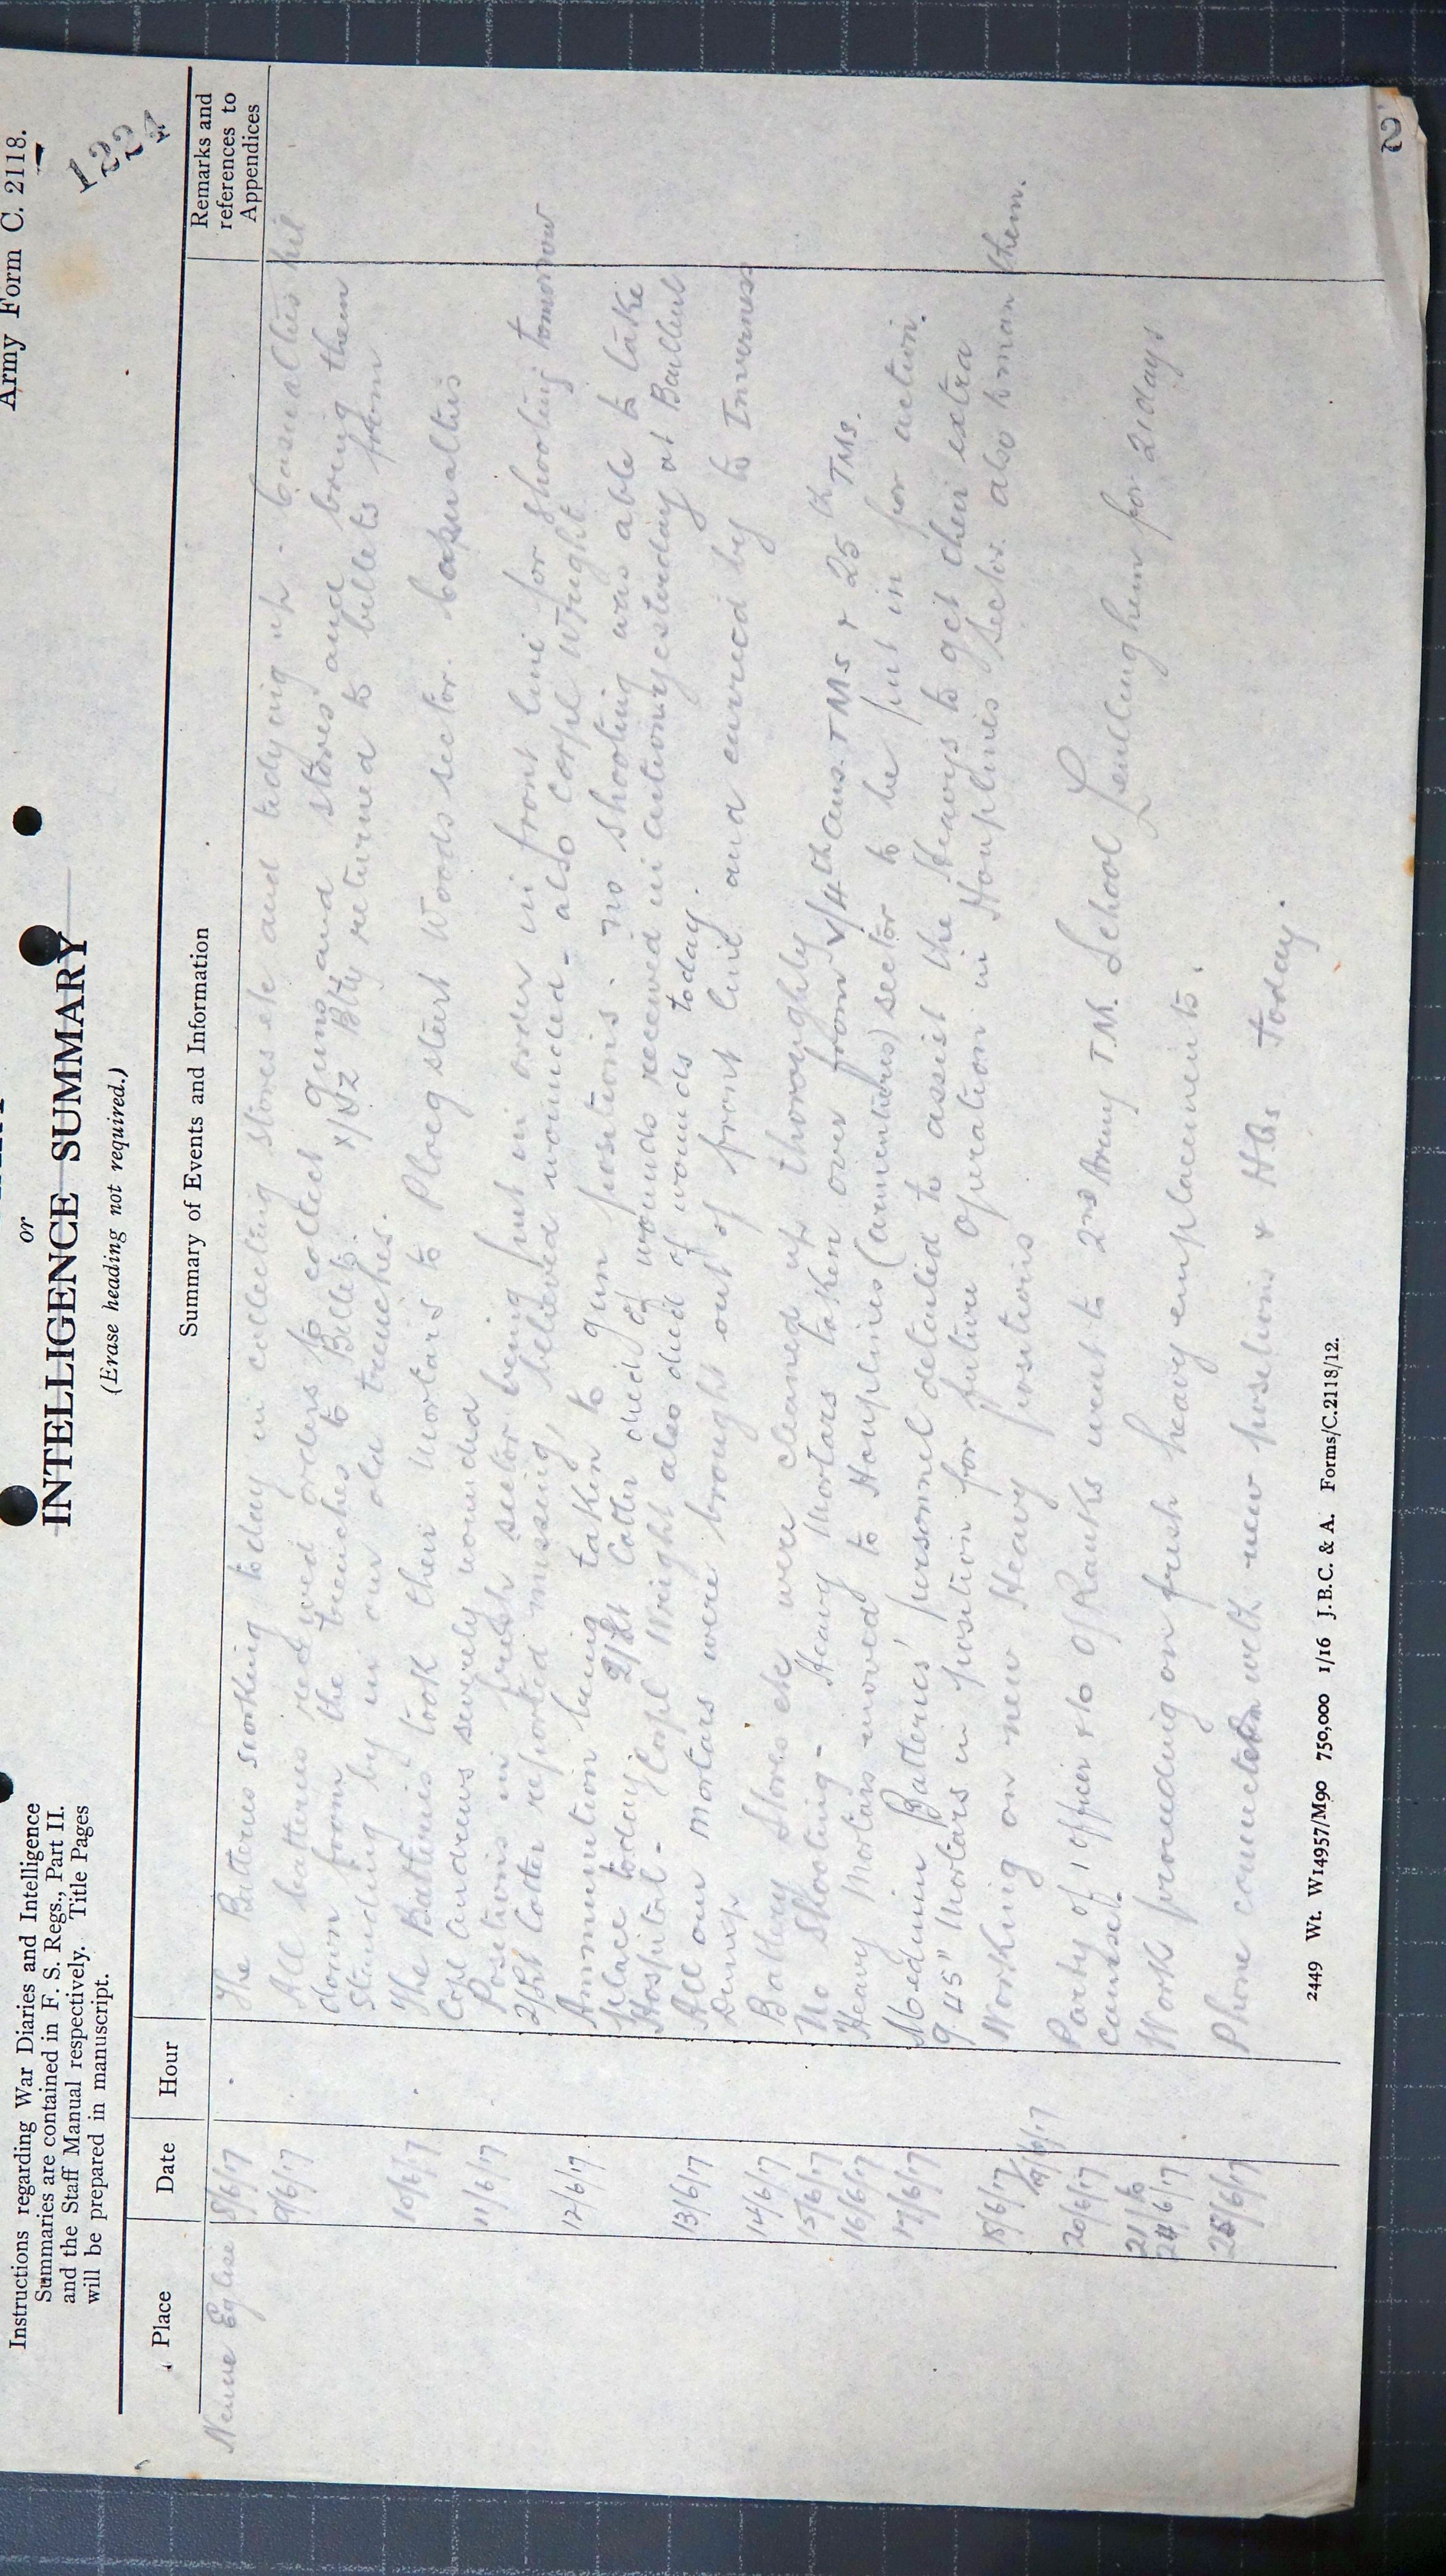 Army Form C. 2118.
1224
Instructions regarding War Diaries and Intelligence
Summaries are contained in F. S. Regs., Part II.
and the Staff Manual respectively. Title Pages
will be prepared in manuscript.
or
INTELLIGENCE SUMMARY
(Erase heading not required.)
Place Date Hour Summary of Events and Information Remarks and references to Appendices
Neuve Eglise 8/6/17 The Batteries working today in collecting stores etc and tidying up - Casualties nil
9/6/17 All batteries received orders to collect guns and stores and bring them
down from the trenches to Billets. X/NZ Bty returned to billets from
Standing by in our old trenches.
10/6/17 The Batteries took their mortars to Ploegsteert Woods sector. Casualties
Corpl Andrews severely wounded
11/6/17 Positions in fresh sector being put in order in front line for shooting tomorrow
2/Lt Cotter reported missing, believed wounded - also Corpl Wright
12/6/17 Ammunition being taken to gun positions. no shooting was able to take
place today. 2/Lt Cotter died of wounds received in action yesterday at Bailleul
Hospital - Corpl Wright also died of wounds today.
13/6/17 All our mortars were brought out of front line and carried by to Inverness
Dump
14/6/17 Battery stores etc were cleaned up thoroughly
15/6/17 No shooting - Heavy Mortars taken over from V/4th Aus. TMs + 25th TMs.
16/6/17 Heavy Mortars moved to Houplines (Armentieres) sector to be put in for action.
17/6/17 Medium Batteries' personnel detailed to assist the Heavys to get their extra
9.45" Mortars in position for future operation in Houplines Sector. also to man them.
18/6/17 19/6/17 Working on new Heavy positions
20/6/17 Party of 1 officer & 16 O/Ranks went to 2nd Army T.M. School Leulinghem for 21 days
course.
21/ to
24/6/17 Work proceeding on fresh heavy emplacements.
25/6/17 Phone connected with new positions & Hds Today.
2449 Wt. W14957/M90 750,000 1/16 J.B.C. & A. Forms/C.2118/12.
2